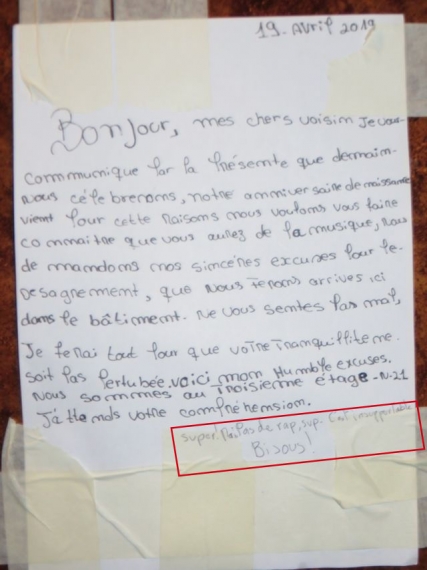 19. Avril 2019
Bonjour, mes chers voisim Je vous
communique Par la Présente que demaim-
nous célebrerons, notre anniversaire de naissance
vient Pour cette Raisons nous voulons vous faire
connaitre que vous aurez de la musique, nous
demamdoms nos simcéres excuses Pour le-
Desagrement, que nous ferons arrives ici
dans le bâtiment. Ne vous sentes Pas mal,
Je ferai tout Pour que votre Tranquillite ne.
soit Pas Pertubée, voici mom Humble excuses.
Nous sommes au troisieme étage -N-21
J'attends votre compréhemsiom.
super! Pas de rap, svp. C'est insupportable
Bisous!